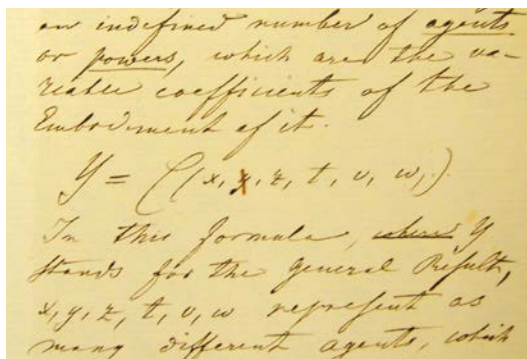 an indefined number of agents
or powers, which are the va-
riable coefficients of the
Embodiment of it.
Y = f(x, y, z, t, v, w,)
In this formula, where Y
stands for the general Result,
x, y, z, t, v, w represent as
many different agents, which